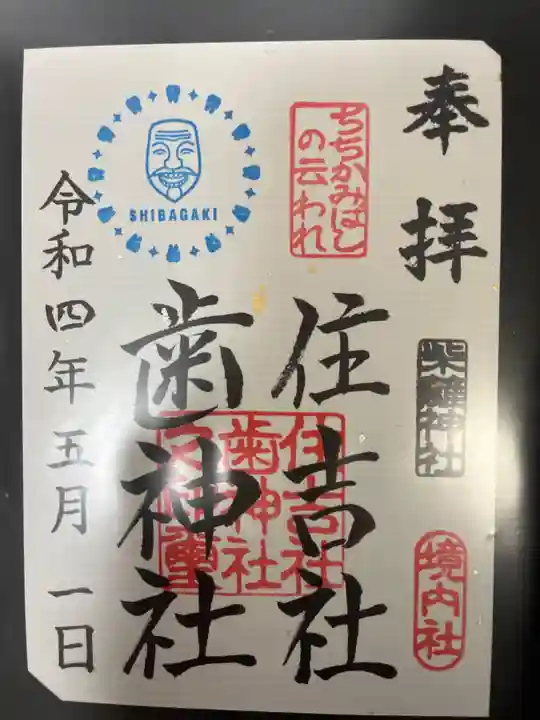 奉拝
柴籬神社
境内社
ちちかみばし
の云われ
住吉社
歯神社
住吉社
歯神社
SHIBAGAKI
令和四年五月一日